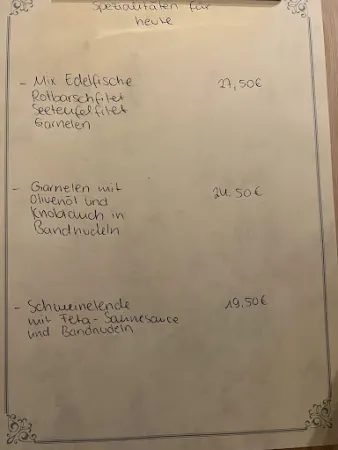 Spezialitäten für
heute
- Mix Edelfische 27,50€
Rotbarschfilet
Seeteufelfilet
Garnelen
- Garnelen mit 24,50€
Olivenöl und
Knoblauch in
Bandnudeln
- Schweinelende 19,50€
mit Feta-Sahnesauce
und Bandnudeln